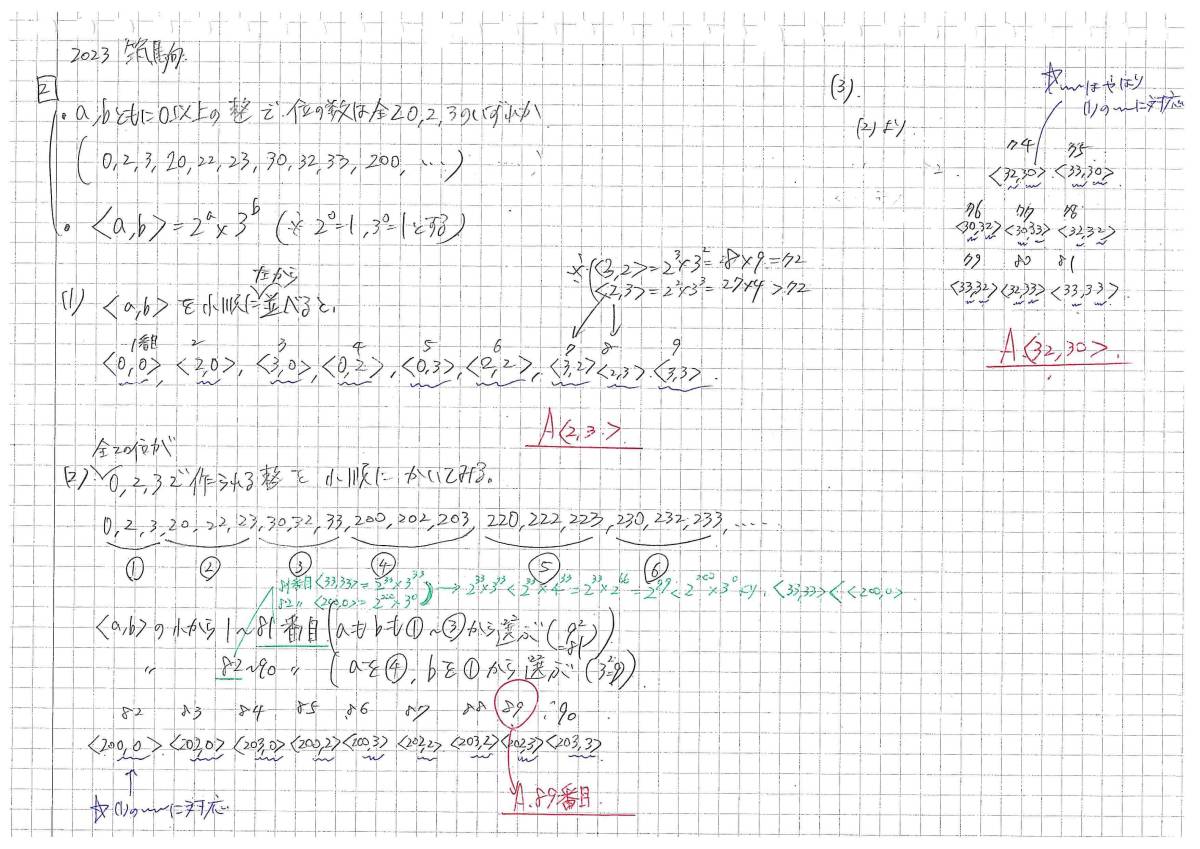 2023 筑駒
2
・a,bともに0以上の整で 位の数は全て0,2,3のいずれか
(0,2,3,20,22,23,30,32,33,200,…)
・<a,b>=2^a×3^b (※ 2^0=1,3^0=1とする)
(1) <a,b>を小順に左から並べると、
※ <3,2>=2^3×3^2=8×9=72
<2,3>=2^2×3^3=27×4>72
1番目 2 3 4 5 6 7 8 9
<0,0>, <2,0>, <3,0>, <0,2>, <0,3>, <2,2>, <3,2> <2,3>. <3,3>
A <2,3>
(2) 全ての位が 0,2,3で作られる整を 小順に かいてみる。
0,2,3,20,22,23,30,32,33,200,202,203, 220,222,223,230,232,233,……
① ② ③ ④ ⑤ ⑥
81番目<33,33>=2^33×3^33
82〃 <200,0>=2^200×3^0
→ 2^33×3^33<2^33×4^33=2^33×2^66=2^99<2^200×3^0 より、<33,33><<200,0>
<a,b>の小から1~81番目(aもbも①~③から選ぶ(9^2=81))
〃 82~90 〃 (aを④,bを①から選ぶ(3^2=9))
82 83 84 85 86 87 88 89 90
<200,0> <202,0> <203,0> <200,2> <200,3> <202,2> <203,2> <202,3> <203,3>
☆(1)の〰に対応
A.89番目
(3).
(2)より
☆〰はやはり
(1)の〰に対応
74 75
<32,30> <33,30>
76 77 78
<30,32> <30,33> <32,32>
79 80 81
<33,32> <32,33> <33,33>
A.<32,30>